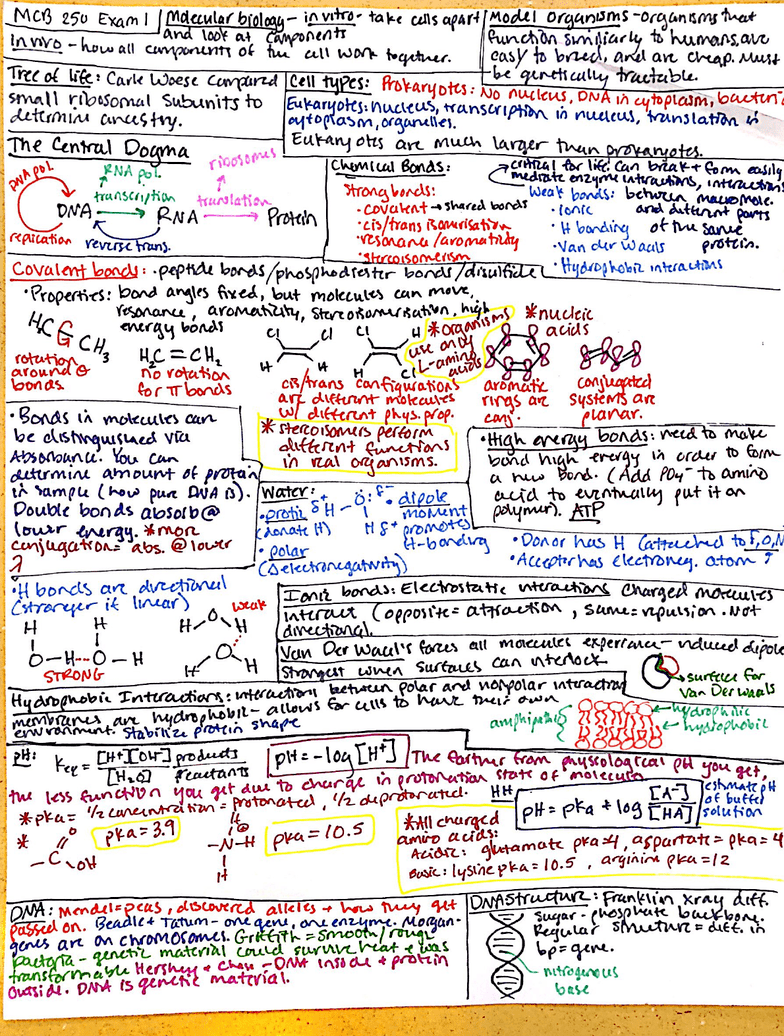 MCB 250 Exam 1
Molecular biology - in vitro - take cells apart
and look at components
In vivo - how all components of the cell work together.
Model Organisms - organisms that
function similiarly to humans, are
easy to breed, and are cheap. Must
be genetically tractable.
Tree of life: Carle Woese compared
small ribosomal subunits to
determine ancestry.
Cell types: Prokaryotes: No nucleus, DNA in cytoplasm, bacteri
Eukaryotes: nucleus, transcription in nucleus, translation in
cytoplasm, organelles.
Eukaryotes are much larger than prokaryotes.
The Central Dogma
DNA pol.
RNA pol.
ribosomes
transcription
translation
DNA → RNA → Protein
replication
reverse trans.
Chemical Bonds:
Strong bonds:
• covalent → shared bonds
• cis/trans isomerisation
• resonance/aromaticity
• steroisomerism
critical for life. Can break + form easily
mediate enzyme interactions, interaction
Weak bonds: between macromole.
and different parts
of the same
protein.
• Ionic
• H bonding
• Van der Waals
• Hydrophobic interactions
Covalent bonds: • peptide bonds/phosphodiester bonds/disulfide
• Properties: bond angles fixed, but molecules can move,
resonance, aromaticity, stereoisomerisation, high
energy bonds
H3C CH3
rotation
around σ
bonds.
H2C = CH2
no rotation
for π bonds
Cl Cl
H H
Cl H
H Cl
cis/trans configurations
are different molecules
w/ different phys. prop.
* organisms
use only
L-amino
acids
* nucleic
acids
aromatic
rings are
conjugated
systems are
planar.
* stereoisomers perform
different functions
in real organisms.
• Bonds in molecules can
be distinguished via
Absorbance. You can
determine amount of protein
in sample (how pure DNA is).
Double bonds absorb @
lower energy. * more
conjugation = abs. @ lower
• High energy bonds: need to make
bond high energy in order to form
a new bond. (Add PO4- to amino
acid to eventually put it on
polymer). ATP
Water:
• protic
(donate H)
• polar
(Δ electronegativity)
δ+ H - O: δ-
H δ+
• dipole
moment
promotes
H-bonding
• Donor has H (attached to F, O, N
• Acceptor has electroneg. atom
• H bonds are directional
(stronger if linear)
H H
O - H --- O - H
STRONG
weak
H O H
H O H
Ionic bonds: Electrostatic interactions Charged molecules
interact (opposite = attraction, same = repulsion. Not
directional.
Van Der Waal's forces all molecules experience - induced dipole
Strongest when surfaces can interlock
surface for
Van Der Waals
Hydrophobic Interactions: interactions between polar and nonpolar interaction
membranes are hydrophobic - allows for cells to have their own
environment. Stabilize protein shape
amphipathic
hydrophilic
hydrophobic
pH:
Keq = [H+][OH-] products
[H2O] reactants
pH = -log [H+]
The farther from physiological pH you get,
the less function you get due to change in protonation state of molecule
* pKa = 1/2 concentration = protonated, 1/2 deprotonated.
HH
pH = pKa + log [A-]
[HA]
estimate pH
of buffer
solution
*
O
C OH
pKa = 3.9
H
N - H
H
pKa = 10.5
* All charged
amino acids:
Acidic: glutamate pKa = 4, aspartate = pKa = 4
Basic: lysine pKa = 10.5, arginine pKa = 12
DNA: Mendel = peas, discovered alleles + how they get
passed on. Beadle + Tatum - one gene, one enzyme. Morgan-
genes are on chromosomes. Griffith = smooth/rough
bacteria - genetic material could survive heat + was
transformable Hershey + Chase - DNA inside + protein
outside. DNA is genetic material.
DNA Structure: Franklin xray diff.
Sugar - phosphate backbone.
Regular structure = diff. in
bp = gene.
nitrogenous
base